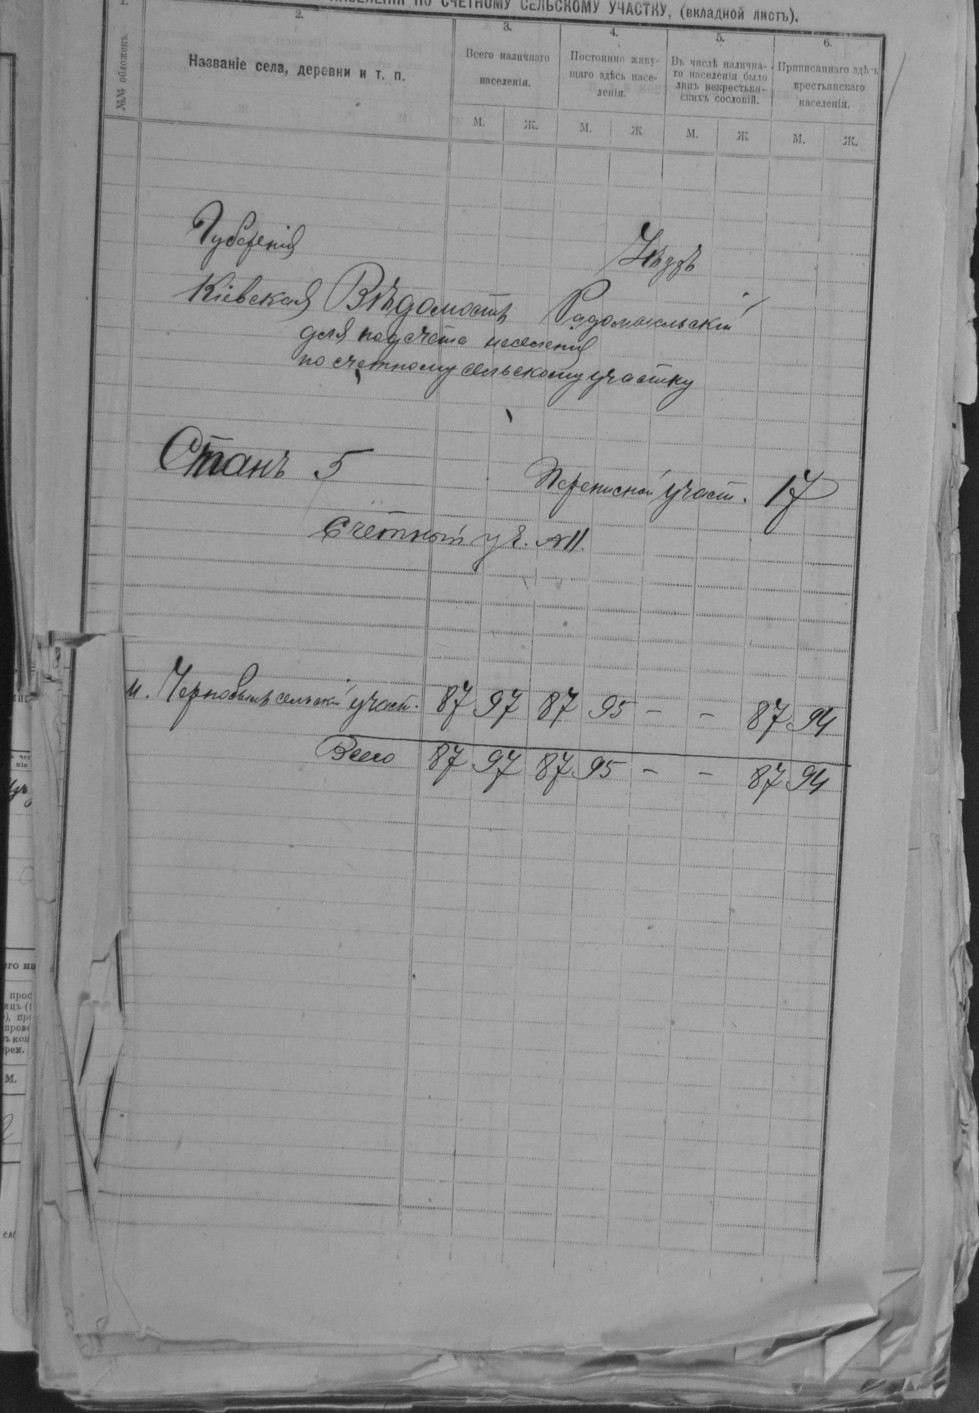 НАСЕЛЕНІЯ ПО СЧЕТНОМУ СЕЛЬСКОМУ УЧАСТКУ, (вкладной листъ).
1. 2. 3. 4. 5. 6.
№№ обложекъ.
Названіе села, деревни и т. п.
Всего наличнаго
населенія.
Постоянно живу-
щаго здѣсь насе-
ленія.
Въ числѣ налична-
го населенія было
лицъ некрестьян-
скихъ сословій.
Приписаннаго здѣсь
крестьянскаго
населенія.
М. Ж. М. Ж М. Ж М. Ж.
Губернія Уѣздъ
Кіевская Вѣдомость Радомысльскій
для подсчета населенія
по счетному сельскому участку
Станъ 5
Переписной участ. 17
Счетный уч.
м. Чернобыль сельскій участ. 87 97 87 95 - - 87 94
Всего 87 97 87 95 - - 87 94
М.